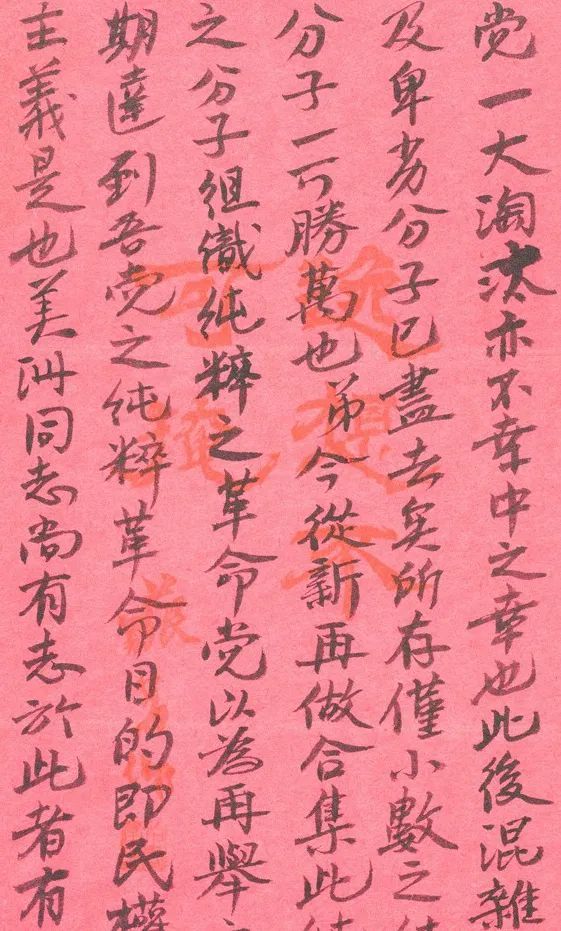 党一大淘汰亦不幸中之幸也此後混雜
及卑劣分子已盡去矣所存僅小數之
分子一可勝萬也弟今從新再做合集此
之分子組織純粹之革命党以為再舉
期達到吾党之純粹革命目的即民權
主義是也美洲同志尚有志於此者有